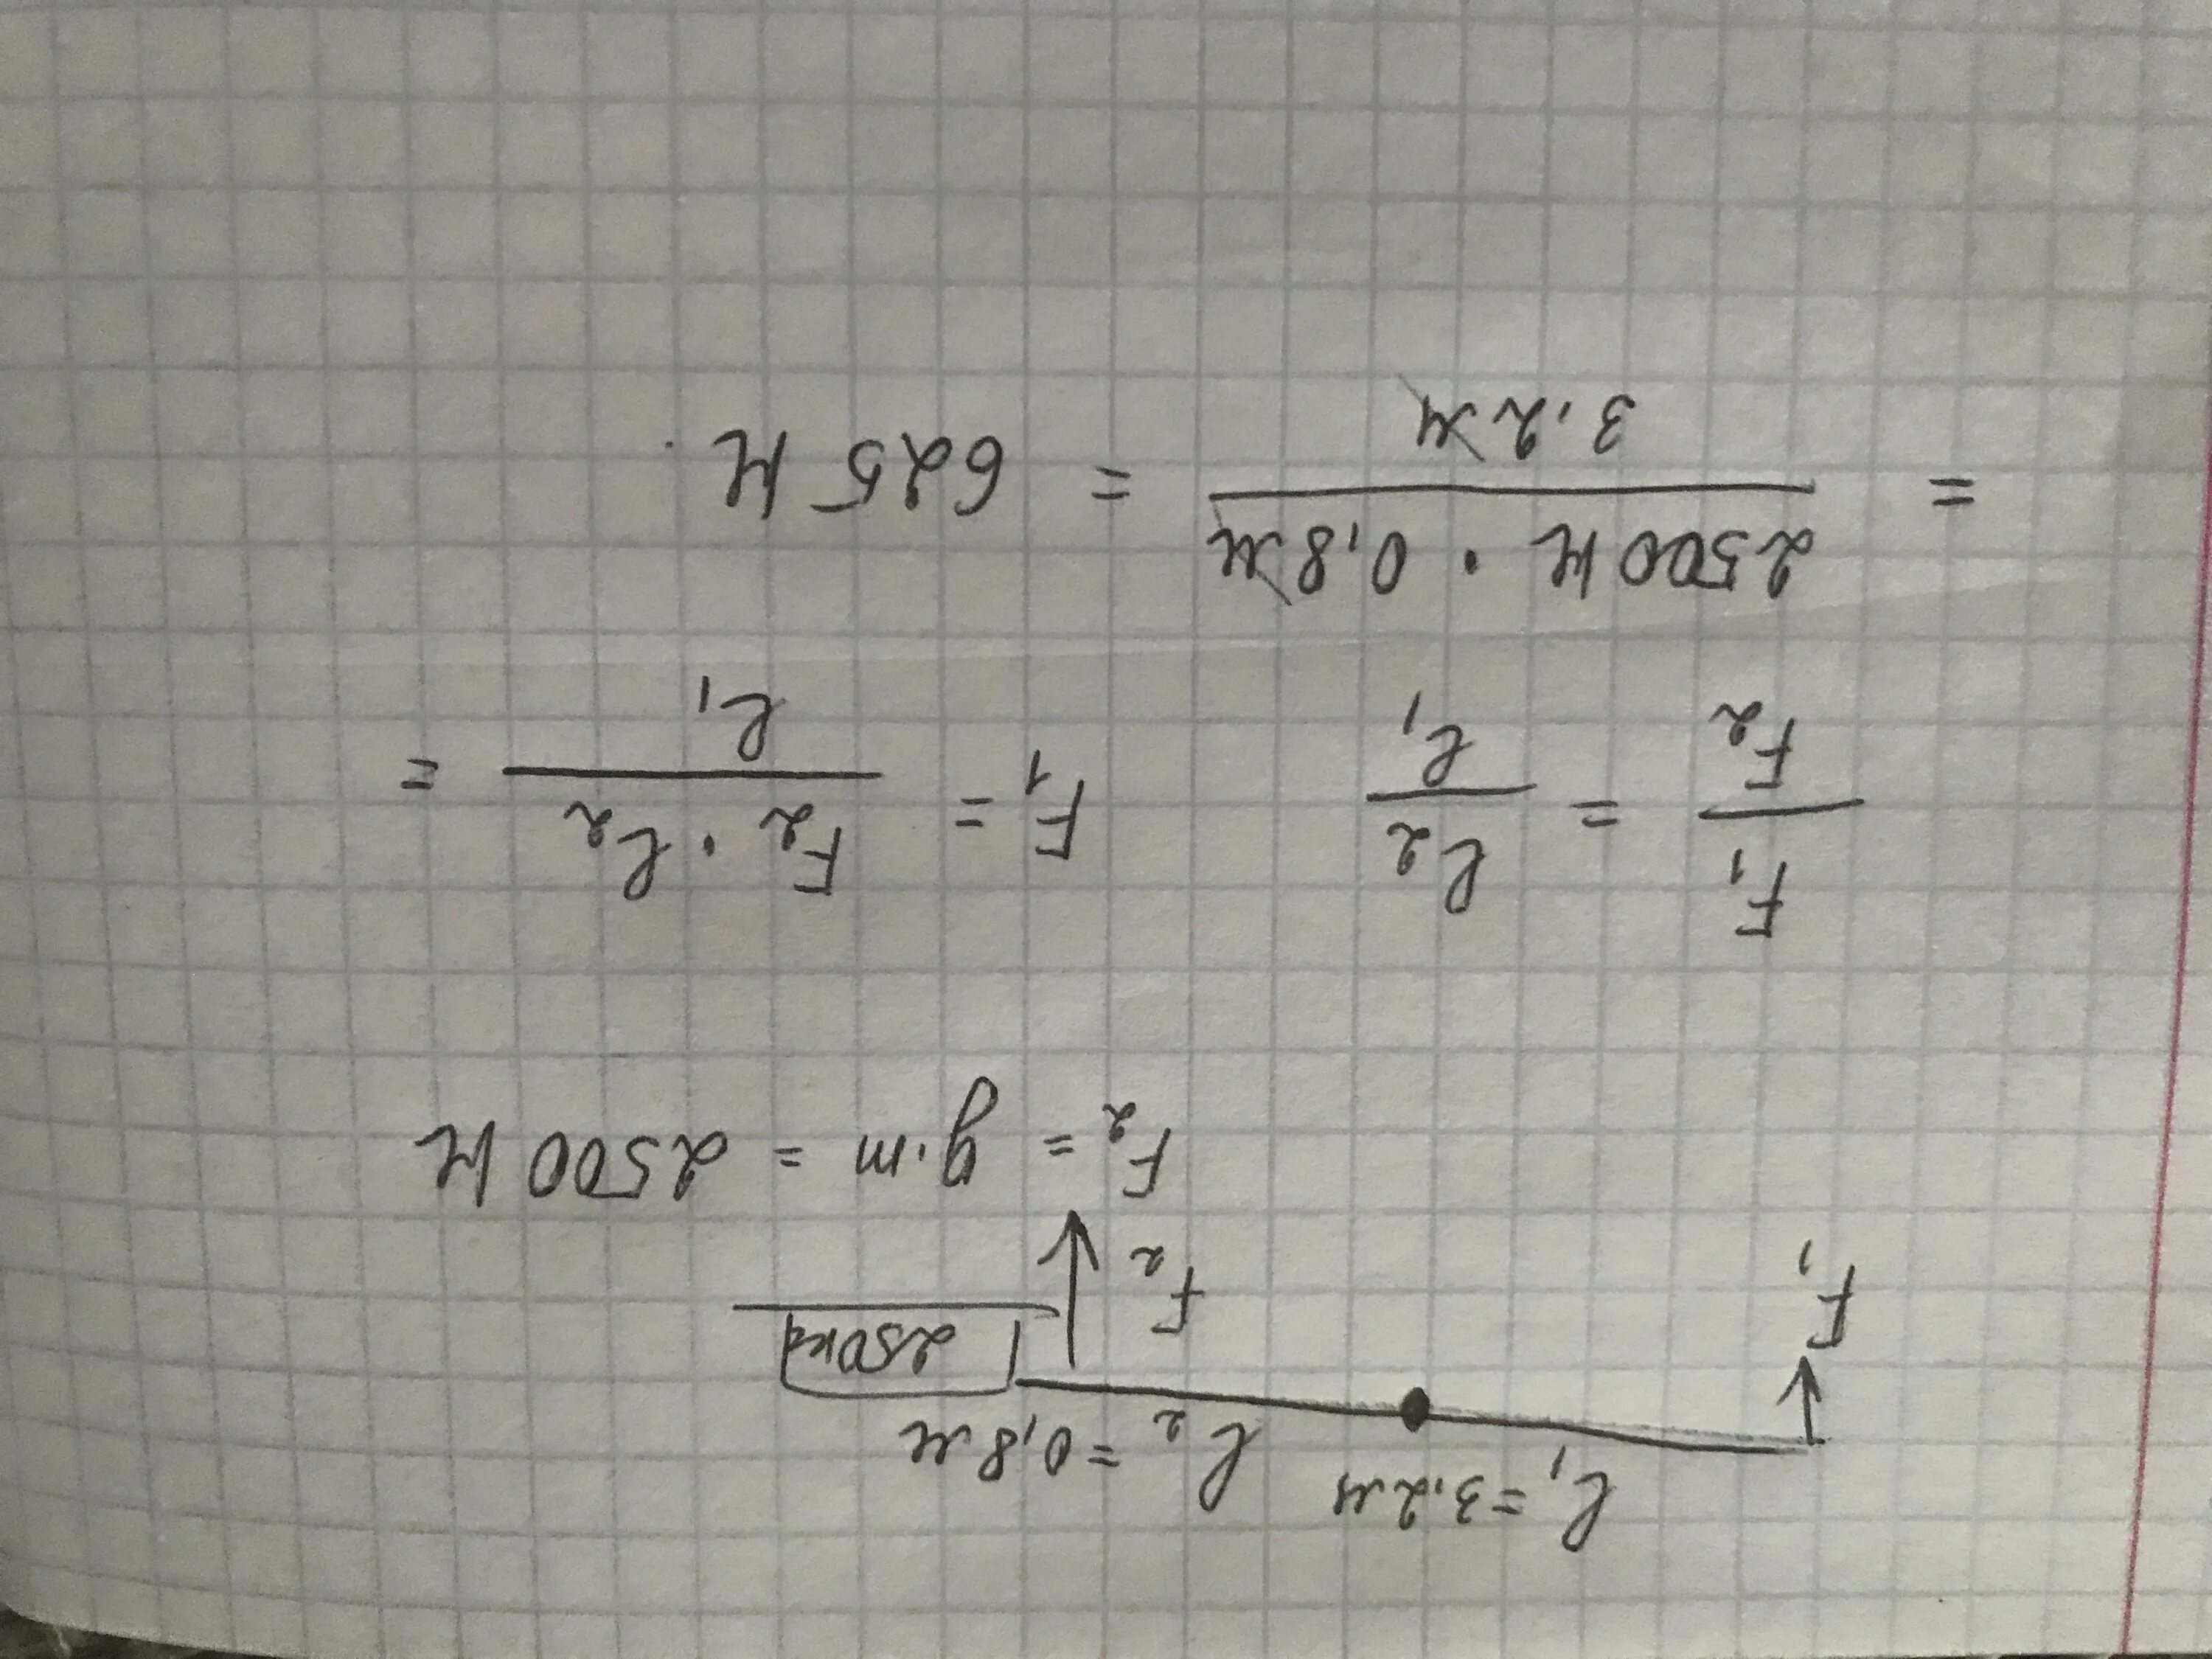 ℓ₁ = 3,2 м ℓ₂ = 0,8 м
250 кг
F₁ F₂
F₂ = g · m = 2500 Н
F₁/F₂ = ℓ₂/ℓ₁ F₁ = (F₂ · ℓ₂)/ℓ₁ =
= (2500 Н · 0,8 м)/(3,2 м) = 625 Н.